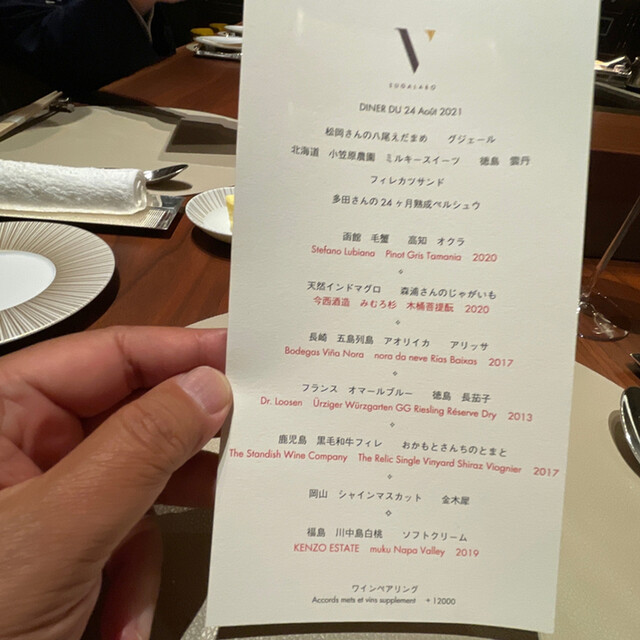 V
SUGALABO
DINER DU 24 Août 2021
松岡さんの八尾えだまめ グジェール
北海道 小笠原農園 ミルキースイーツ 徳島 雲丹
フィレカツサンド
多田さんの24ヶ月熟成ペルシュウ
函館 毛蟹 高知 オクラ
Stefano Lubiana Pinot Gris Tamania 2020
天然インドマグロ 森浦さんのじゃがいも
今西酒造 みむろ杉 木桶菩提酛 2020
長崎 五島列島 アオリイカ アリッサ
Bodegas Viña Nora nora da neve Rias Baixas 2017
フランス オマールブルー 徳島 長茄子
Dr. Loosen Ürziger Würzgarten GG Riesling Réserve Dry 2013
鹿児島 黒毛和牛フィレ おかもとさんちのとまと
The Standish Wine Company The Relic Single Vinyard Shiraz Viognier 2017
岡山 シャインマスカット 金木犀
福島 川中島白桃 ソフトクリーム
KENZO ESTATE muku Napa Valley 2019
ワインペアリング
Accords mets et vins supplement +12000